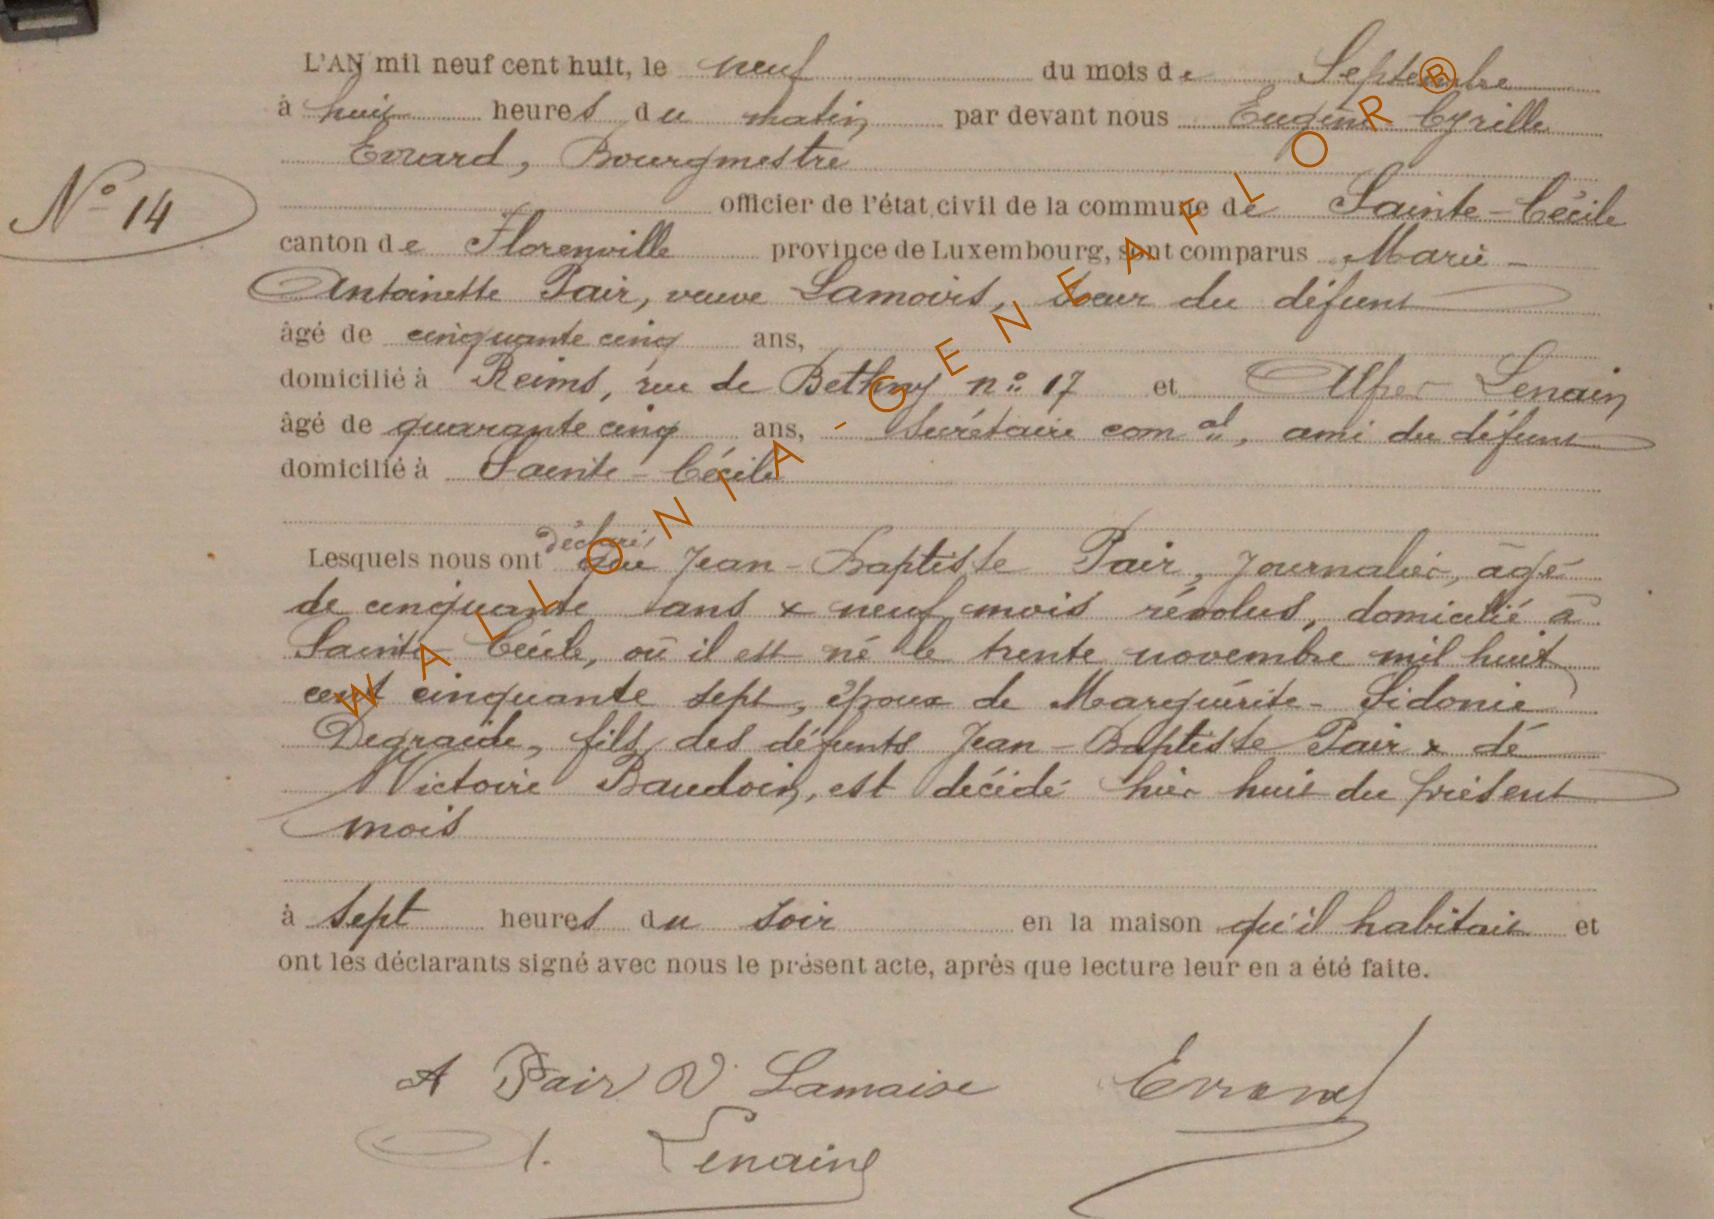 L'AN mil neuf cent huit, le neuf du mois de Septembre
à huit heures du matin par devant nous Eugène Cyrille
Evrard, Bourgmestre
officier de l'état civil de la commune de Sainte-Cécile
N° 14
canton de Florenville province de Luxembourg, sont comparus Marie-
Antoinette Pair, veuve Lamoirs, soeur du défunt
âgé de cinquante cinq ans,
domicilié à Reims, rue de Betheny n° 17 et Alfred Lenain
âgé de quarante cinq ans, Secrétaire com al, ami du défunt
domicilié à Sainte-Cécile
déclaré,
Lesquels nous ont que Jean-Baptiste Pair, Journalier, âgé
de cinquante ans & neuf mois révolus, domicilié à
Sainte Cécile, où il est né le trente novembre mil huit
cent cinquante sept, époux de Marguérite-Sidonie
Degraide, fils des défunts Jean-Baptiste Pair & de
Victoire Baudoin, est décédé hier huit du présent
mois
à sept heures du soir en la maison qu'il habitait et
ont les déclarants signé avec nous le présent acte, après que lecture leur en a été faite.
A Pair V. Lamaise Evrard
A. Lenain
WALLONIA-GENEAFLOR®